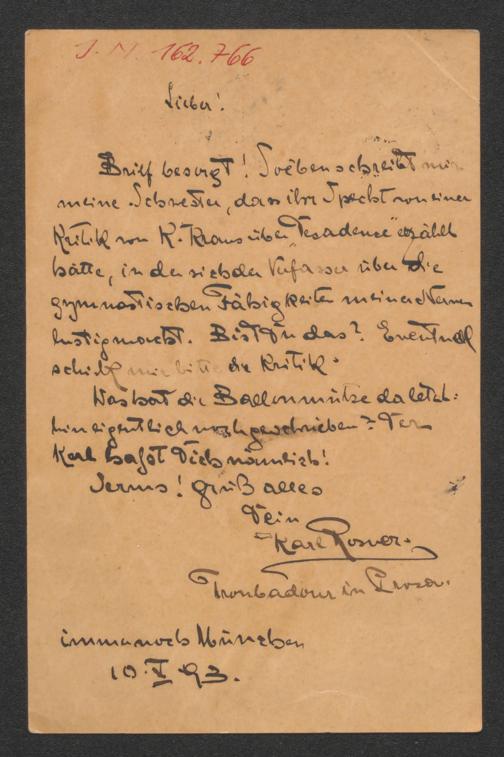 J. N. 162.766
Lieber!
Brief besorgt! Soeben schreibt mir
meine Schwester, dass ihr Specht von einer
Kritik von K. Kraus über "Decadence" erzählt
hätte, in der sich der Verfasser über die
gymnastischen Fähigkeiten meiner Nerven
lustigmacht. Bist Du das? Eventuell
schick mir bitte die Kritik.
Was hat die Ballonmütze da letzt-
hin eigentlich noch geschrieben? Der
Kerl hasst Dich nämlich!
Servus! Grüß alles
Dein
Karl Rosner.
Troubadour in Prosa.
immer noch München
10. V. 93.